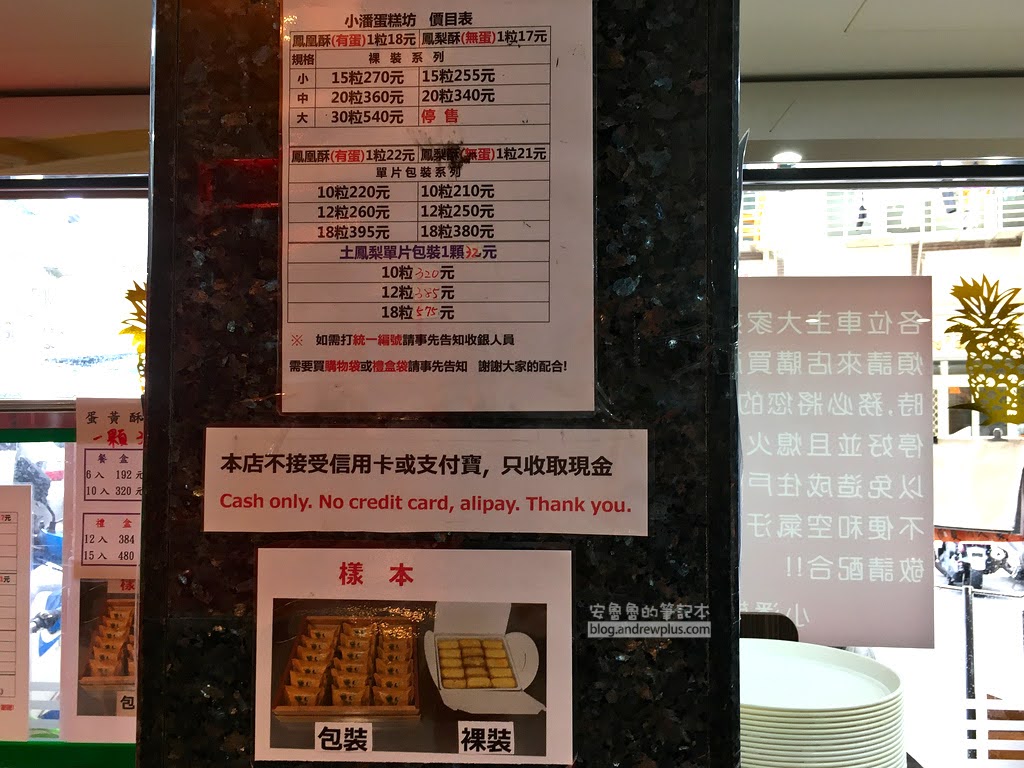 小潘蛋糕坊 價目表
鳳凰酥(有蛋)1粒18元 鳳梨酥(無蛋)1粒17元
規格 裸裝系列
小 15粒270元 15粒255元
中 20粒360元 20粒340元
大 30粒540元 停售
鳳凰酥(有蛋)1粒22元 鳳梨酥(無蛋)1粒21元
單片包裝系列
10粒220元 10粒210元
12粒260元 12粒250元
18粒395元 18粒380元
土鳳梨單片包裝1顆32元
10粒320元
12粒385元
18粒575元
※ 如需打統一編號請事先告知收銀人員
需要買購物袋或禮盒袋請事先告知 謝謝大家的配合!
本店不接受信用卡或支付寶, 只收取現金
Cash only. No credit card, alipay. Thank you.
樣本
包裝 裸裝
蛋黃酥
一顆
餐盒
6入 192元
10入 320元
禮盒
12入 384
15入 480
樣
包
各位車主大家
煩請來店購買
時,務必將您的
停好並且熄火
以免造成住戶
不便和空氣汙
敬請配合!!
小潘
安魯魯的筆記本
blog.andrewplus.com